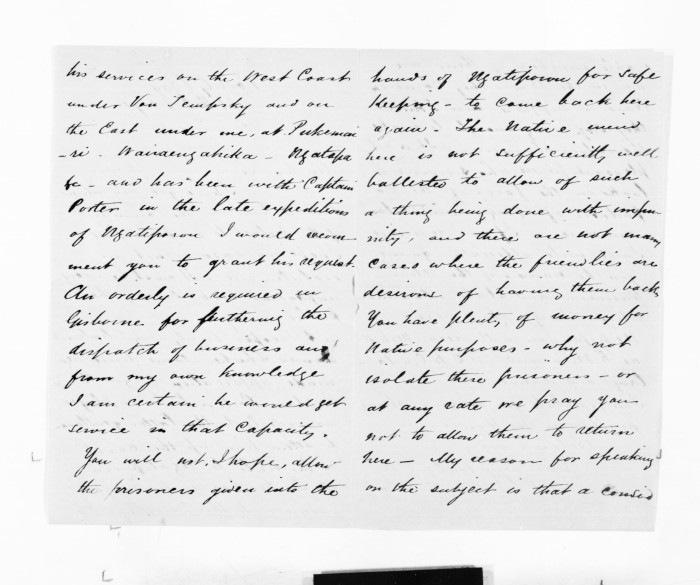 his services on the West Coast
under Von Tempsky and on
the East under me, at Pukemai
-ri. Waiaengahika - Ngatapa
&c - and has been with Captain
Porter in the late expeditions
of Ngatiporou I would recom
ment you to grant his request.
An orderly is required in
Gisborne for furthering the
dispatch of business and
from my own knowledge
I am certain he would get
service in that Capacity.
You will not, I hope, allow
the prisoners given into the
hands of Ngatiporou for safe
Keeping - to come back here
again - The Native mind
here is not sufficiently well
ballested to allow of such
a thing being done with impu
nity, and there are not many
Cases where the friendlies are
desirous of having them back,
You have plenty of money for
Native purposes - why not
isolate these prisoners - or
at any rate we pray you
not to allow them to return
here - My reason for speaking
on the subject is that a consid